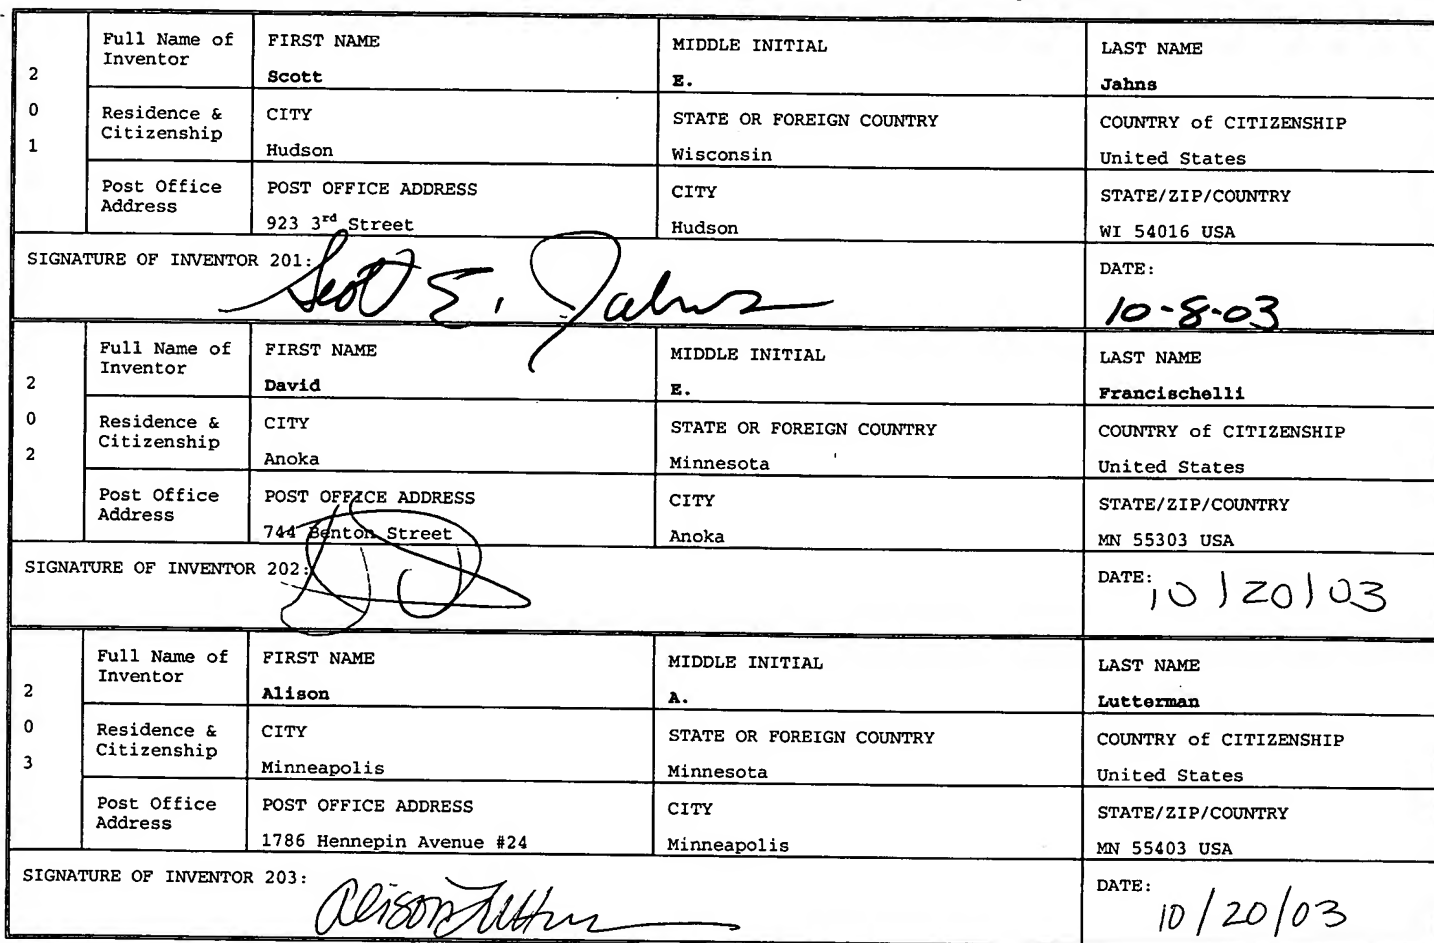 2 0 1
Full Name of Inventor
FIRST NAME
Scott
MIDDLE INITIAL
E.
LAST NAME
Jahns
Residence & Citizenship
CITY
Hudson
STATE OR FOREIGN COUNTRY
Wisconsin
COUNTRY of CITIZENSHIP
United States
Post Office Address
POST OFFICE ADDRESS
923 3rd Street
CITY
Hudson
STATE/ZIP/COUNTRY
WI 54016 USA
SIGNATURE OF INVENTOR 201: Scott E. Jahns
DATE:
10-8-03
2 0 2
Full Name of Inventor
FIRST NAME
David
MIDDLE INITIAL
E.
LAST NAME
Francischelli
Residence & Citizenship
CITY
Anoka
STATE OR FOREIGN COUNTRY
Minnesota
COUNTRY of CITIZENSHIP
United States
Post Office Address
POST OFFICE ADDRESS
744 Benton Street
CITY
Anoka
STATE/ZIP/COUNTRY
MN 55303 USA
SIGNATURE OF INVENTOR 202:
DATE: 10/20/03
2 0 3
Full Name of Inventor
FIRST NAME
Alison
MIDDLE INITIAL
A.
LAST NAME
Lutterman
Residence & Citizenship
CITY
Minneapolis
STATE OR FOREIGN COUNTRY
Minnesota
COUNTRY of CITIZENSHIP
United States
Post Office Address
POST OFFICE ADDRESS
1786 Hennepin Avenue #24
CITY
Minneapolis
STATE/ZIP/COUNTRY
MN 55403 USA
SIGNATURE OF INVENTOR 203: Alison
DATE:
10/20/03